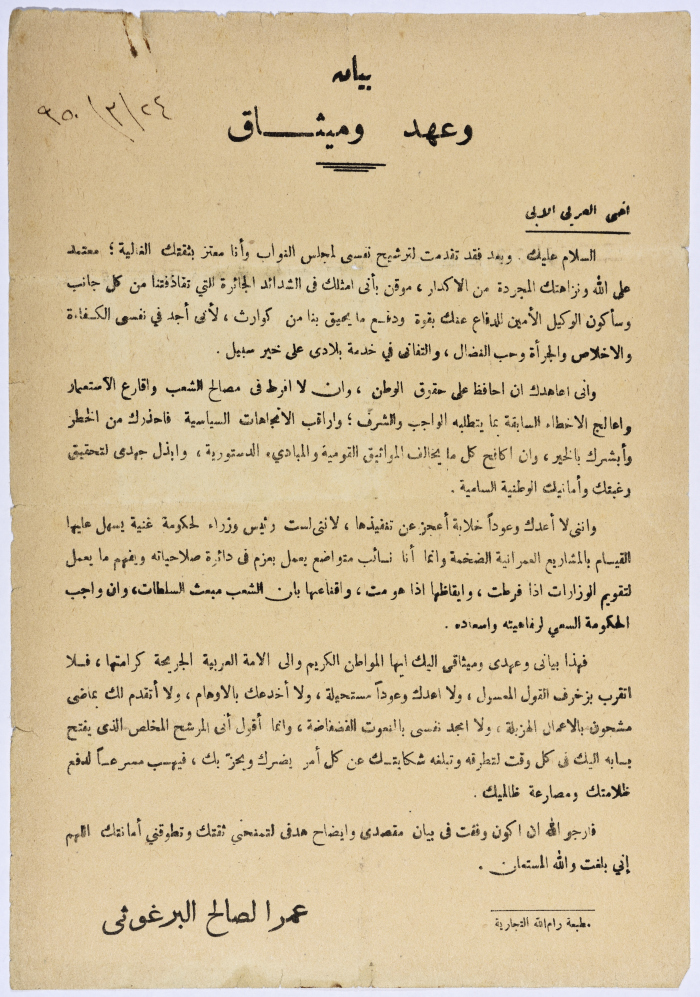 بيان
٢٤/٣/٩٥٠
وعهد وميثاق
اخي العربي الابي
السلام عليك . وبعد فقد تقدمت لترشيح نفسي لمجلس النواب وأنا معتز بثقتك الغالية ؛ معتمد
على الله ونزاهتك المجردة من الاكدار ، موقن بأني امثلك في الشدائد الجائرة التي تقاذفتنا من كل جانب
وسأكون الوكيل الأمين للدفاع عنك بقوة ودفع ما يحيق بنا من كوارث ، لأني أجد في نفسي الكفاءة
والاخلاص والجرأة وحب النضال ، والتفاني في خدمة بلادي على خير سبيل .
واني اعاهدك ان احافظ على حقوق الوطن ، وان لا افرط في مصالح الشعب واقارع الاستعمار
واعالج الاخطاء السابقة بما يتطلبه الواجب والشرف ؛ واراقب الاتجاهات السياسية فاحذرك من الخطر
وأبشرك بالخير ، وان اكافح كل ما يخالف المواثيق القومية والمباديء الدستورية ، وابذل جهدي لتحقيق
رغبتك وأمانيك الوطنية السامية .
وانني لا أعدك وعوداً خلابة أعجز عن تنفيذها ، لانني لست رئيس وزراء لحكومة غنية يسهل عليها
القيام بالمشاريع العمرانية الضخمة وانما أنا نائب متواضع يعمل بعزم في دائرة صلاحياته ويفهم ما يعمل
لتقويم الوزارات اذا فرطت ، وايقاظها اذا هومت ، واقناعها بان الشعب مبعث السلطات، وان واجب
الحكومة السعي لرفاهيته واسعاده .
فهذا بياني وعهدي وميثاقي اليك ايها المواطن الكريم والى الامة العربية الجريحة كرامتها ، فلا
اتقرب بزخرف القول المعسول ، ولا اعدك وعوداً مستحيلة ، ولا أخدعك بالاوهام ، ولا أتقدم لك بماضي
مشحون بالاعمال الهزيلة ، ولا امجد نفسي بالنعوت الفضفاضة ، وانما أقول أني المرشح المخلص الذي يفتح
بابه اليك في كل وقت لتطرقه وتبلغه شكايتك عن كل أمر يضرك ويحز بك ، فيهب مسرعاً لدفع
ظلامتك ومصارعة ظالميك .
فارجو الله ان اكون وفقت في بيان مقصدي وايضاح هدفي لتمنحني ثقتك وتطوقني أمانتك اللهم
إني بلغت والله المستعان .
عمر الصالح البرغوثي
مطبعة رام الله التجارية